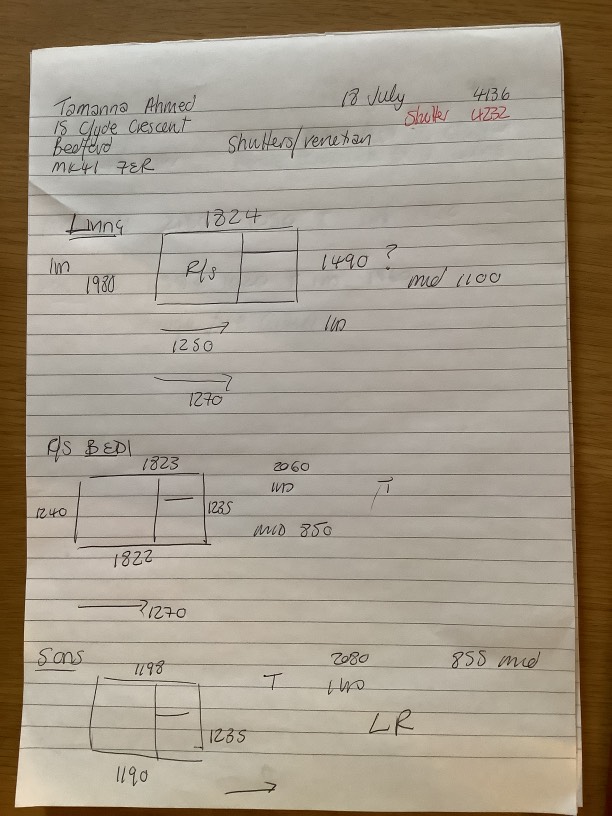 Tamanna Ahmed 18 July 4136
18 Clyde Crescent Shutter 4232
Bedford Shutters/venetian
MK41 7ER
Living 1824
1m 1980 R/s 1490 ? mid 1100
1250
1270
BED1
1823 2060
1240 1235 T
mid 850
1822
1270
Sons 1198 2080 855 mid
T
1235 LR
1190